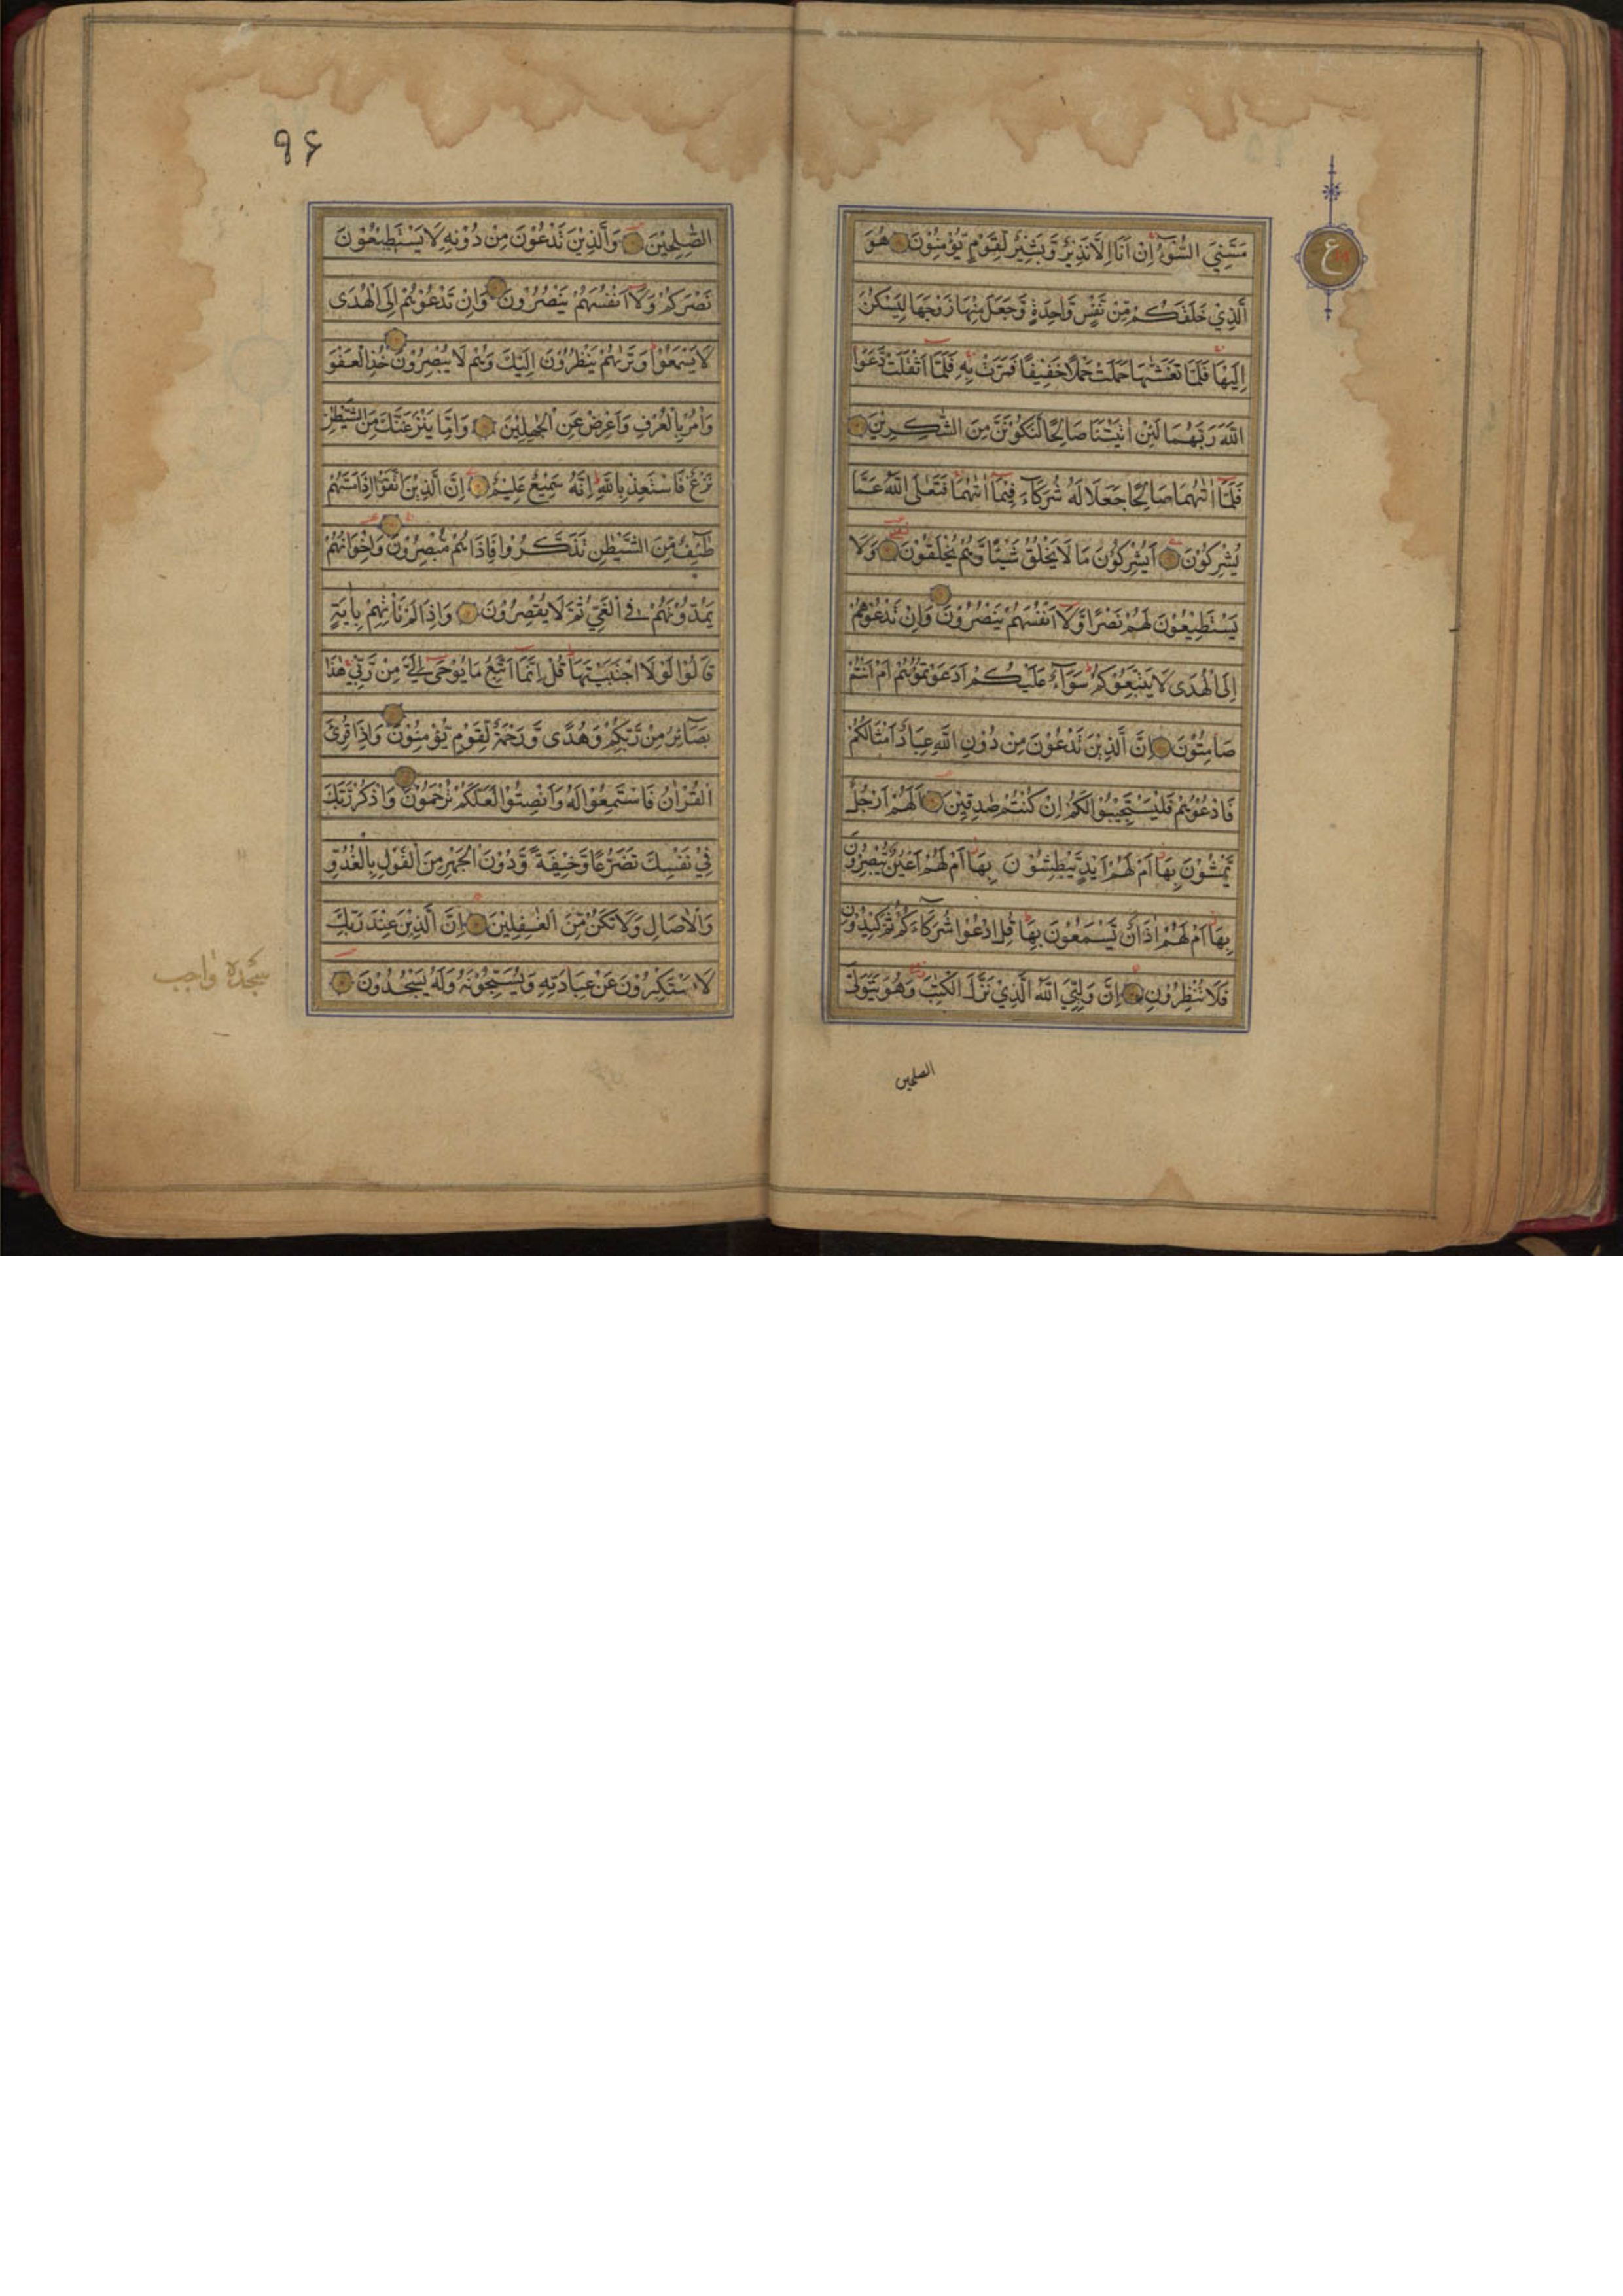 ع
مَسَّنِيَ السُّوۤءُ اِنْ اَنَا اِلَّا نَذِيْرٌ وَّبَشِيْرٌ لِّقَوْمٍ يُّؤْمِنُوْنَ هُوَ
الَّذِيْ خَلَقَكُمْ مِّنْ نَّفْسٍ وَّاحِدَةٍ وَّجَعَلَ مِنْهَا زَوْجَهَا لِيَسْكُنَ
اِلَيْهَا فَلَمَّا تَغَشّٰىهَا حَمَلَتْ حَمْلًا خَفِيْفًا فَمَرَّتْ بِهٖ فَلَمَّاۤ اَثْقَلَتْ دَّعَوَا
اللّٰهَ رَبَّهُمَا لَئِنْ اٰتَيْتَنَا صَالِحًا لَّنَكُوْنَنَّ مِنَ الشّٰكِرِيْنَ
فَلَمَّاۤ اٰتٰىهُمَا صَالِحًا جَعَلَا لَهٗ شُرَكَاۤءَ فِيْمَاۤ اٰتٰىهُمَا فَتَعٰلَى اللّٰهُ عَمَّا
يُشْرِكُوْنَ اَيُشْرِكُوْنَ مَا لَا يَخْلُقُ شَيْئًا وَّهُمْ يُخْلَقُوْنَ وَلَا
يَسْتَطِيْعُوْنَ لَهُمْ نَصْرًا وَّلَاۤ اَنْفُسَهُمْ يَنْصُرُوْنَ وَاِنْ تَدْعُوْهُمْ
اِلَى الْهُدٰى لَا يَتَّبِعُوْكُمْ سَوَاۤءٌ عَلَيْكُمْ اَدَعَوْتُمُوْهُمْ اَمْ اَنْتُمْ
صَامِتُوْنَ اِنَّ الَّذِيْنَ تَدْعُوْنَ مِنْ دُوْنِ اللّٰهِ عِبَادٌ اَمْثَالُكُمْ
فَادْعُوْهُمْ فَلْيَسْتَجِيْبُوْا لَكُمْ اِنْ كُنْتُمْ صٰدِقِيْنَ اَلَهُمْ اَرْجُلٌ
يَّمْشُوْنَ بِهَا اَمْ لَهُمْ اَيْدٍ يَّبْطِشُوْنَ بِهَا اَمْ لَهُمْ اَعْيُنٌ يُّبْصِرُوْنَ
بِهَا اَمْ لَهُمْ اٰذَانٌ يَّسْمَعُوْنَ بِهَا قُلِ ادْعُوْا شُرَكَاۤءَكُمْ ثُمَّ كِيْدُوْنِ
فَلَا تُنْظِرُوْنِ اِنَّ وَلِيِّيَ اللّٰهُ الَّذِيْ نَزَّلَ الْكِتٰبَ وَهُوَ يَتَوَلَّى
الصلحين
۹۶
الصّٰلِحِيْنَ وَالَّذِيْنَ تَدْعُوْنَ مِنْ دُوْنِهٖ لَا يَسْتَطِيْعُوْنَ
نَصْرَكُمْ وَلَاۤ اَنْفُسَهُمْ يَنْصُرُوْنَ وَاِنْ تَدْعُوْهُمْ اِلَى الْهُدٰى
لَا يَسْمَعُوْا وَتَرٰىهُمْ يَنْظُرُوْنَ اِلَيْكَ وَهُمْ لَا يُبْصِرُوْنَ خُذِ الْعَفْوَ
وَاْمُرْ بِالْعُرْفِ وَاَعْرِضْ عَنِ الْجٰهِلِيْنَ وَاِمَّا يَنْزَغَنَّكَ مِنَ الشَّيْطٰنِ
نَزْغٌ فَاسْتَعِذْ بِاللّٰهِ اِنَّهٗ سَمِيْعٌ عَلِيْمٌ اِنَّ الَّذِيْنَ اتَّقَوْا اِذَا مَسَّهُمْ
طٰۤئِفٌ مِّنَ الشَّيْطٰنِ تَذَكَّرُوْا فَاِذَا هُمْ مُّبْصِرُوْنَ وَاِخْوَانُهُمْ
يَمُدُّوْنَهُمْ فِي الْغَيِّ ثُمَّ لَا يُقْصِرُوْنَ وَاِذَا لَمْ تَاْتِهِمْ بِاٰيَةٍ
قَالُوْا لَوْلَا اجْتَبَيْتَهَا قُلْ اِنَّمَاۤ اَتَّبِعُ مَا يُوْحٰۤى اِلَيَّ مِنْ رَّبِّيْ هٰذَا
بَصَاۤئِرُ مِنْ رَّبِّكُمْ وَهُدًى وَّرَحْمَةٌ لِّقَوْمٍ يُّؤْمِنُوْنَ وَاِذَا قُرِئَ
الْقُرْاٰنُ فَاسْتَمِعُوْا لَهٗ وَاَنْصِتُوْا لَعَلَّكُمْ تُرْحَمُوْنَ وَاذْكُرْ رَّبَّكَ
فِيْ نَفْسِكَ تَضَرُّعًا وَّخِيْفَةً وَّدُوْنَ الْجَهْرِ مِنَ الْقَوْلِ بِالْغُدُوِّ
وَالْاٰصَالِ وَلَا تَكُنْ مِّنَ الْغٰفِلِيْنَ اِنَّ الَّذِيْنَ عِنْدَ رَبِّكَ
لَا يَسْتَكْبِرُوْنَ عَنْ عِبَادَتِهٖ وَيُسَبِّحُوْنَهٗ وَلَهٗ يَسْجُدُوْنَ
سجدة واجب